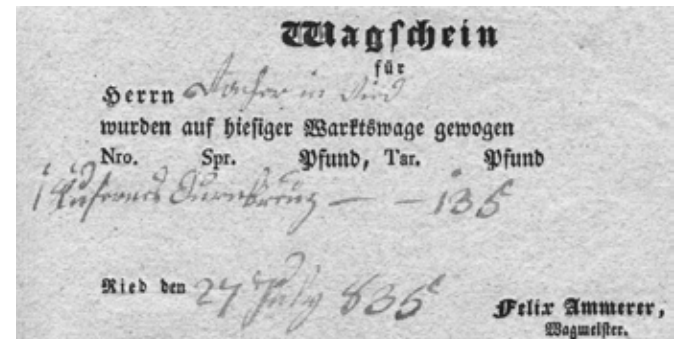 Wagschein
für
Herrn in Ried
wurden auf hiesiger Marktswage gewogen
Nro. Spr. Pfund, Tar. Pfund
1 — — 135
Ried den 27 July 835
Felix Ammerer,
Wagmeister.